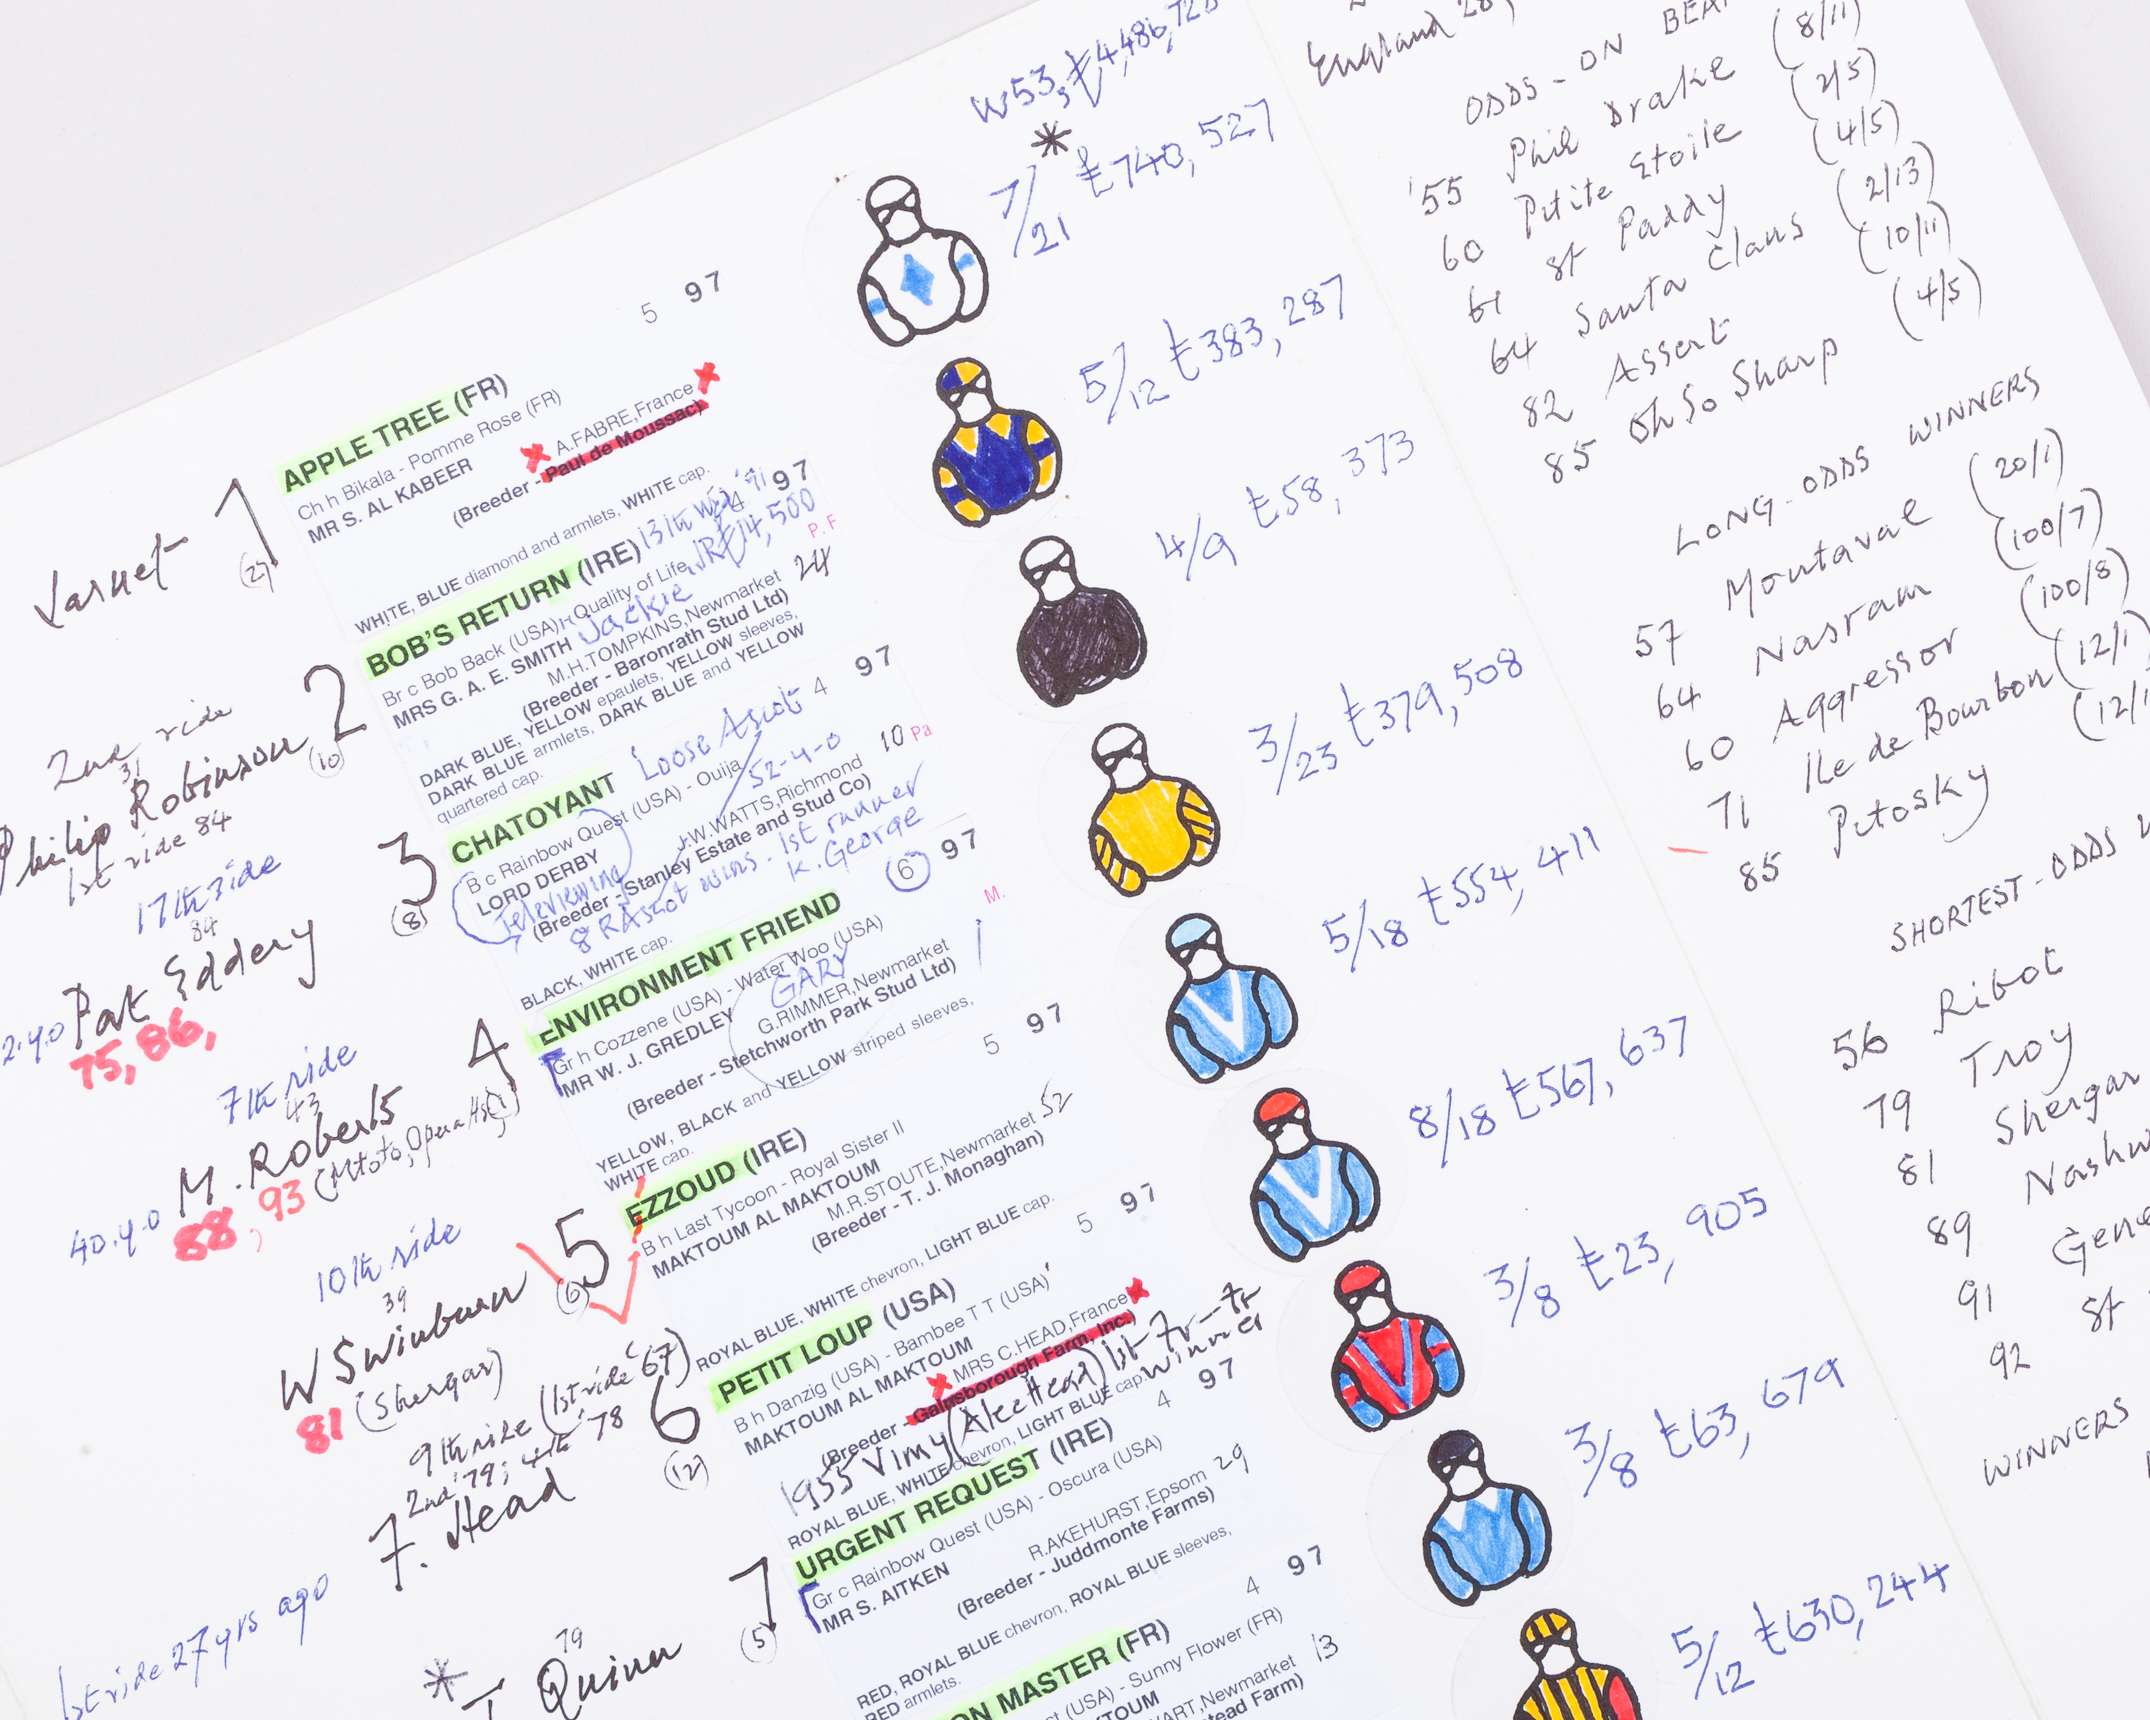 W53, £4,486,72
*
7/21 £740,527
5 97
Jarnet 1
(2)
APPLE TREE (FR)
Ch h Bikala - Pomme Rose (FR)
MR S. AL KABEER
A.FABRE,France
(Breeder - Paul de Moussac)
WHITE, BLUE diamond and armlets, WHITE cap.
5/12 £383,287
2nd ride
31
Philip Robinson 2
1st ride 84
(10)
4 97
BOB'S RETURN (IRE) 13th
IR£14,500
P.F
Br c Bob Back (USA) - Quality of Life
MRS G. A. E. SMITH Jackie
M.H.TOMPKINS,Newmarket 24
(Breeder - Baronrath Stud Ltd)
DARK BLUE, YELLOW epaulets, YELLOW sleeves,
DARK BLUE armlets, DARK BLUE and YELLOW
quartered cap.
4/9 £58,373
17th ride
84
Pat Eddery 3
(8)
75, 86,
4 97
CHATOYANT Loose Ascot
B c Rainbow Quest (USA) - Ouija
52-4-0
LORD DERBY
J.W.WATTS,Richmond 10 Pa
Televiewing
(Breeder - Stanley Estate and Stud Co)
8 RAscot wins. 1st runner
K. George
BLACK, WHITE cap.
3/23 £379,508
7th ride
43
M. Roberts 4
(1)
40.4.0 88, 93 (Mtoto, Opera Hse)
(6) 97
ENVIRONMENT FRIEND
Gr h Cozzene (USA) - Water Woo (USA)
MR W. J. GREDLEY
GARY
M.
G.RIMMER,Newmarket 1
(Breeder - Stetchworth Park Stud Ltd)
YELLOW, BLACK and YELLOW striped sleeves,
WHITE cap.
5/18 £554,411
10th ride
39
W Swinburn 5
(6)
81 (Shergar)
5 97
EZZOUD (IRE)
B h Last Tycoon - Royal Sister II
MAKTOUM AL MAKTOUM
M.R.STOUTE,Newmarket 52
(Breeder - T. J. Monaghan)
ROYAL BLUE, WHITE chevron, LIGHT BLUE cap.
8/18 £567,637
9th ride (1st ride '67)
2nd '79; 4th '78
F. Head 6
(12)
1st ride 27 yrs ago
5 97
PETIT LOUP (USA)
B h Danzig (USA) - Bambee T T (USA)
MAKTOUM AL MAKTOUM
MRS C.HEAD,France
(Breeder - Gainsborough Farm, Inc.)
1955 Vimy (Alec Head) 1st Fr-Tr
winner
ROYAL BLUE, WHITE chevron, LIGHT BLUE cap.
3/8 £23,905
79
* T Quinn 7
(5)
4 97
URGENT REQUEST (IRE)
Gr c Rainbow Quest (USA) - Oscura (USA)
MR S. AITKEN
R.AKEHURST,Epsom 29
(Breeder - Juddmonte Farms)
RED, ROYAL BLUE chevron, ROYAL BLUE sleeves,
RED armlets.
3/8 £63,679
4 97
ON MASTER (FR)
st (USA) - Sunny Flower (FR)
KTOUM
WART,Newmarket 13
tead Farm)
5/12 £630,244
England 28,
ODDS-ON BEA
'55 Phil Drake (8/11)
60 Petite Etoile (2/5)
61 St Paddy (4/5)
64 Santa Claus (2/13)
82 Assert (10/11)
85 Oh So Sharp (4/5)
LONG-ODDS WINNERS
57 Montaval (20/1)
64 Nasram (100/7)
60 Aggressor (100/8)
71 Ile de Bourbon (12/1)
85 Petosky (12/1
SHORTEST-ODDS W
56 Ribot
79 Troy
81 Shergar
89 Nashw
91 Gene
92 St
WINNERS